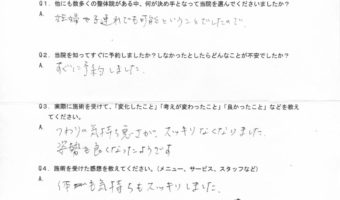 Q1. 他にも数多くの整体院がある中、何が決め手となって当院を選んでくださいましたか？
A. 妊婦や子連れでも可能ということでしたので.
Q2. 当院を知ってすぐに予約しましたか？しなかったとしたらどんなことが不安でしたか？
A. すぐに予約しました.
Q3. 実際に施術を受けて、「変化したこと」「考えが変わったこと」「良かったこと」などを教えてください。
A. つわりの気持ち悪さが、スッキリなくなりました.
姿勢も良くなったようです
Q4. 施術を受けた感想を教えてください。（メニュー、サービス、スタッフなど）
A. 体も気持ちもスッキリしました.